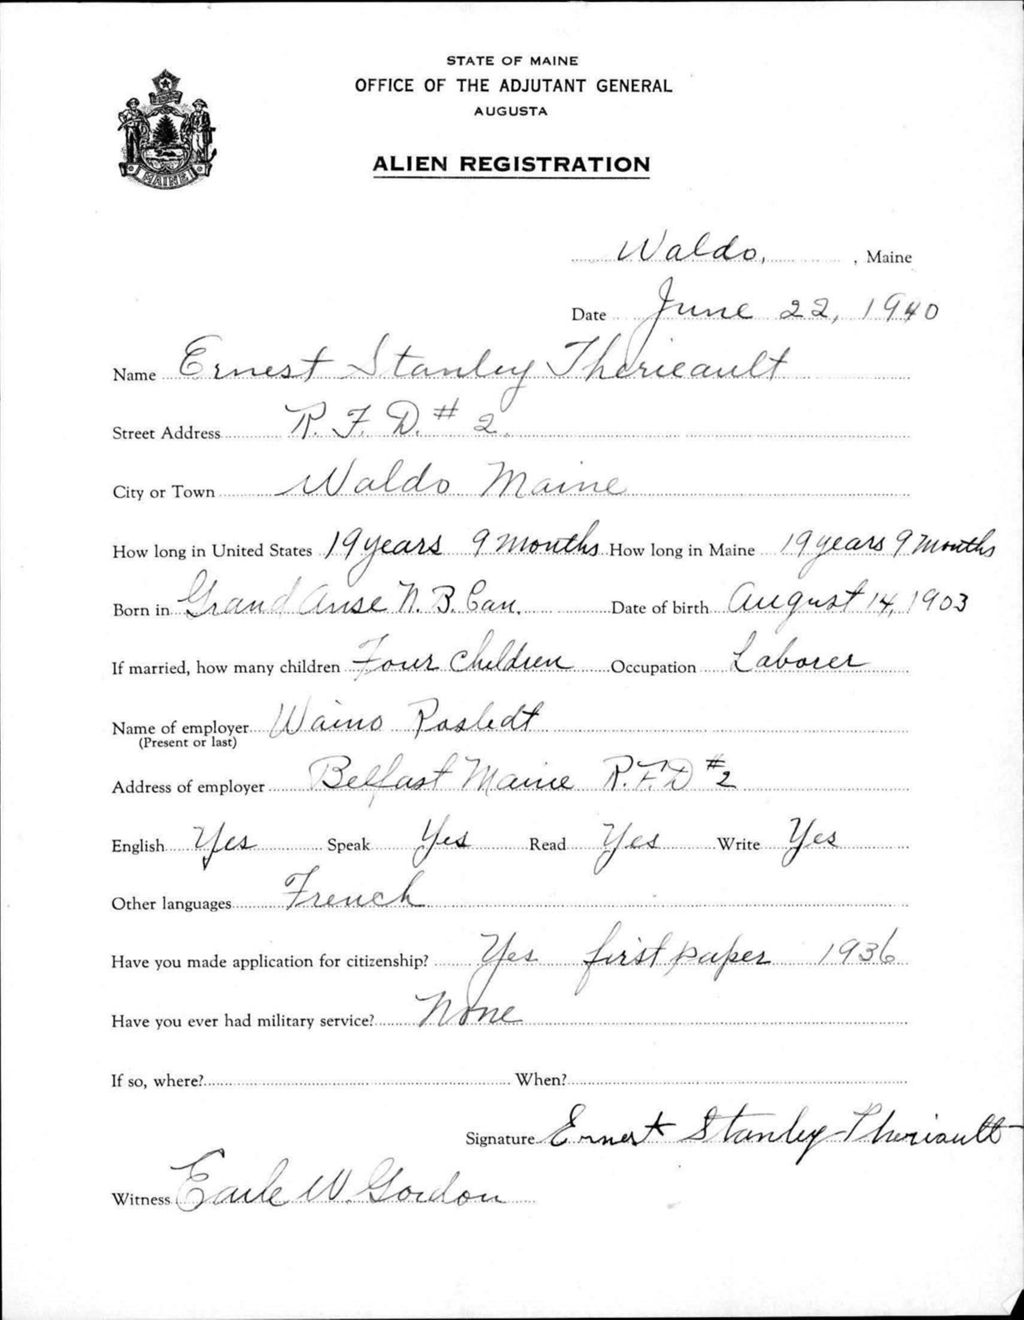 STATE OF MAINE
OFFICE OF THE ADJUTANT GENERAL
AUGUSTA
ALIEN REGISTRATION
MAINE
Waldo, , Maine
Date June 22, 1940
Name Ernest Stanley Therieault
Street Address R. F. D. # 2
City or Town Waldo Maine
How long in United States 19 years 9 months How long in Maine 19 years 9 months
Born in Grand Anse N. B. Can. Date of birth August 14, 1903
If married, how many children Four Children Occupation Laborer
Name of employer Waino
(Present or last)
Address of employer Belfast Maine R. F. D #2
English Yes Speak Yes Read Yes Write Yes
Other languages French
Have you made application for citizenship? Yes first paper 1936
Have you ever had military service? None
If so, where? When?
Signature Ernest Stanley Theriault
Witness Earle W. Gordon